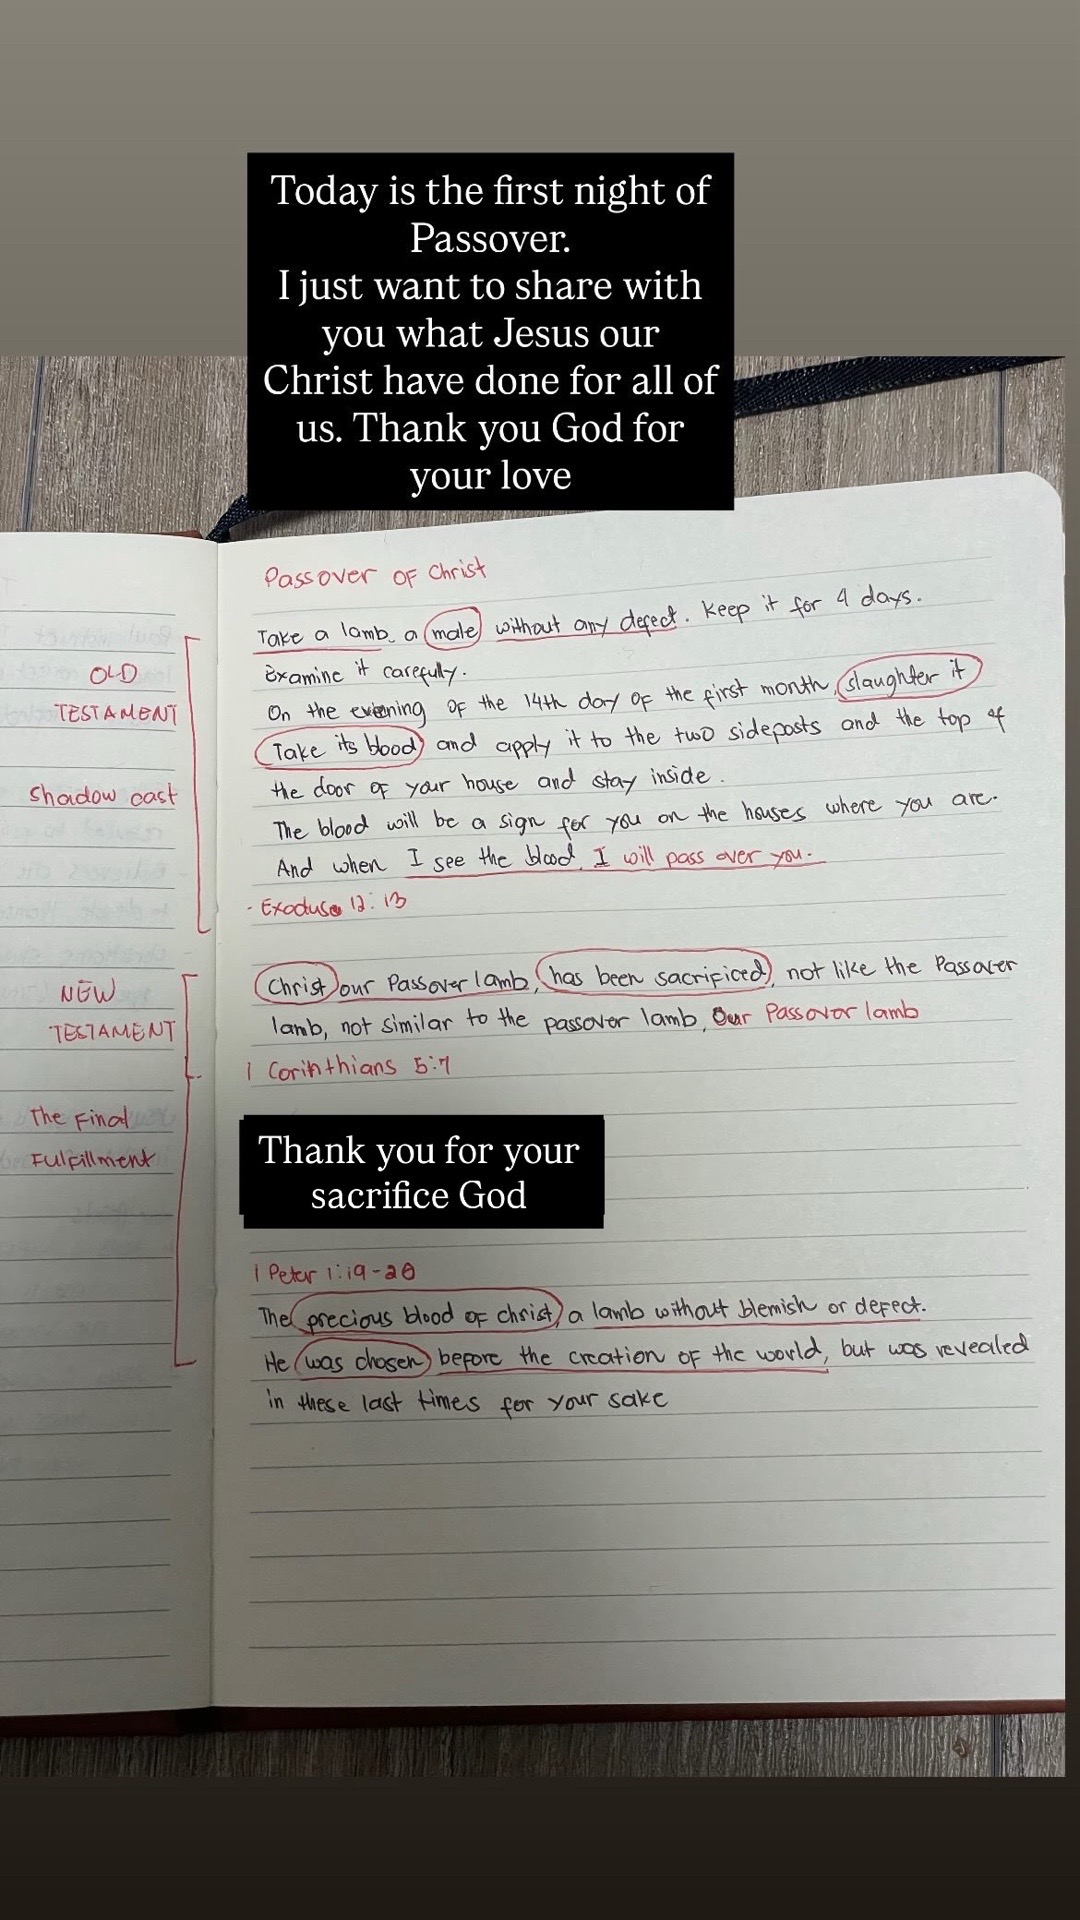 Today is the first night of
Passover.
I just want to share with
you what Jesus our
Christ have done for all of
us. Thank you God for
your love
Passover of Christ
Take a lamb a male without any defect. Keep it for 4 days.
Examine it carefully.
OLD
TESTAMENT
On the evening of the 14th day of the first month, slaughter it
Take its blood and apply it to the two sideposts and the top of
the door of your house and stay inside.
Shadow cast
The blood will be a sign for you on the houses where you are.
And when I see the blood, I will pass over you.
- Exodus 12:13
NEW
TESTAMENT
Christ our Passover lamb, has been sacrificed, not like the Passover
lamb, not similar to the passover lamb, Our Passover lamb
1 Corinthians 5:7
The Final
Fulfillment
Thank you for your
sacrifice God
1 Peter 1:19-20
The precious blood of christ, a lamb without blemish or defect.
He was chosen before the creation of the world, but was revealed
in these last times for your sake